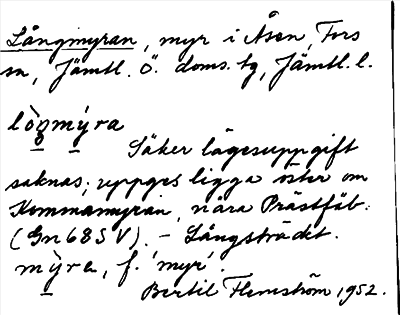 Långmyran, myr i Åsen, Fors
sn, Jämtl. Ö. doms. tg, Jämtl. l.
lo̊gmy̆ra
Säker lägesuppgift
saknas; uppges ligga öster om
Kommamyran, nära Prästfäb.
(Gn 68 S V). – Långsträdet.
my̆ra, f. 'myr'.
Bertil Flemström 1952.